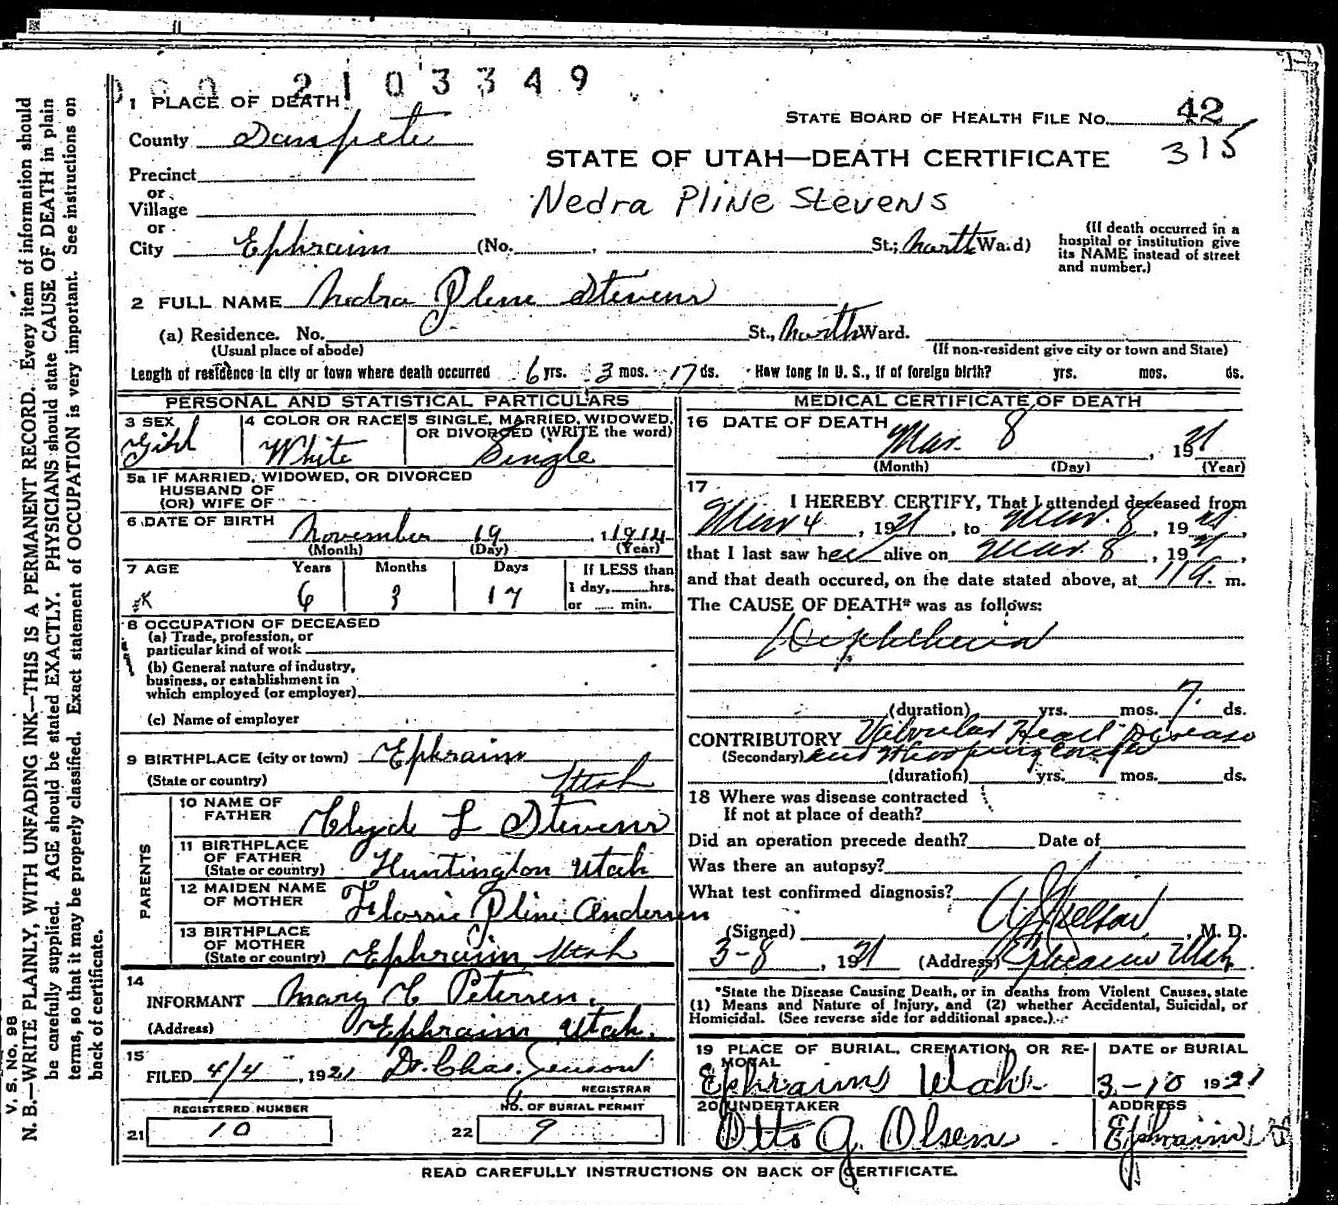 2103349
1 PLACE OF DEATH
County Sanpete
STATE BOARD OF HEALTH FILE No. 42
315
STATE OF UTAH—DEATH CERTIFICATE
Precinct
or
Village
Nedra Pline Stevens
or
City Ephraim (No. , St.; North Ward)
(If death occurred in a hospital or institution give its NAME instead of street and number.)
2 FULL NAME Nedra Pline Stevens
(a) Residence. No. St., North Ward.
(Usual place of abode) (If non-resident give city or town and State)
Length of residence in city or town where death occurred 6 yrs. 3 mos. 17 ds. How long in U. S., if of foreign birth? yrs. mos. ds.
PERSONAL AND STATISTICAL PARTICULARS
3 SEX Girl
4 COLOR OR RACE White
5 SINGLE, MARRIED, WIDOWED, OR DIVORCED (WRITE the word) Single
5a IF MARRIED, WIDOWED, OR DIVORCED
HUSBAND OF
(OR) WIFE OF
6 DATE OF BIRTH November 19, 1914
(Month) (Day) (Year)
7 AGE Years Months Days If LESS than
1 day, hrs.
6 3 17 or min.
8 OCCUPATION OF DECEASED
(a) Trade, profession, or
particular kind of work
(b) General nature of industry,
business, or establishment in
which employed (or employer)
(c) Name of employer
9 BIRTHPLACE (city or town) Ephraim
(State or country) Utah
PARENTS
10 NAME OF FATHER Clyde L Stevens
11 BIRTHPLACE OF FATHER (State or country) Huntington Utah
12 MAIDEN NAME OF MOTHER Florrie Pline Andersen
13 BIRTHPLACE OF MOTHER (State or country) Ephraim Utah
14
INFORMANT Mary C Petersen.
(Address) Ephraim Utah.
15
FILED 4/4, 1921 Dr. Chas. Jenson
REGISTRAR
REGISTERED NUMBER NO. OF BURIAL PERMIT
21 10 22 9
MEDICAL CERTIFICATE OF DEATH
16 DATE OF DEATH
Mar. 8, 1921
(Month) (Day) (Year)
17
I HEREBY CERTIFY, That I attended deceased from
Mar 4, 1921, to Mar. 8, 1921,
that I last saw her alive on Mar. 8, 1921,
and that death occured, on the date stated above, at m.
The CAUSE OF DEATH* was as follows:
Diphtheria
(duration) yrs. mos. 7 ds.
CONTRIBUTORY Valvular Heart Disease
(Secondary) and Whooping Cough
(duration) yrs. mos. ds.
18 Where was disease contracted
If not at place of death?
Did an operation precede death? Date of
Was there an autopsy?
What test confirmed diagnosis?
(Signed) , M. D.
3-8, 1921 (Address) Ephraim Utah
*State the Disease Causing Death, or in deaths from Violent Causes, state
(1) Means and Nature of Injury, and (2) whether Accidental, Suicidal, or
Homicidal. (See reverse side for additional space.)
19 PLACE OF BURIAL, CREMATION, OR REMOVAL DATE OF BURIAL
Ephraim Utah. 3-10 1921
20 UNDERTAKER ADDRESS
Otto G. Olsen Ephraim
READ CAREFULLY INSTRUCTIONS ON BACK OF CERTIFICATE.
V. S. No. 98
N. B.—WRITE PLAINLY, WITH UNFADING INK—THIS IS A PERMANENT RECORD. Every item of information should
be carefully supplied. AGE should be stated EXACTLY. PHYSICIANS should state CAUSE OF DEATH in plain
terms, so that it may be properly classified. Exact statement of OCCUPATION is very important. See instructions on
back of certificate.